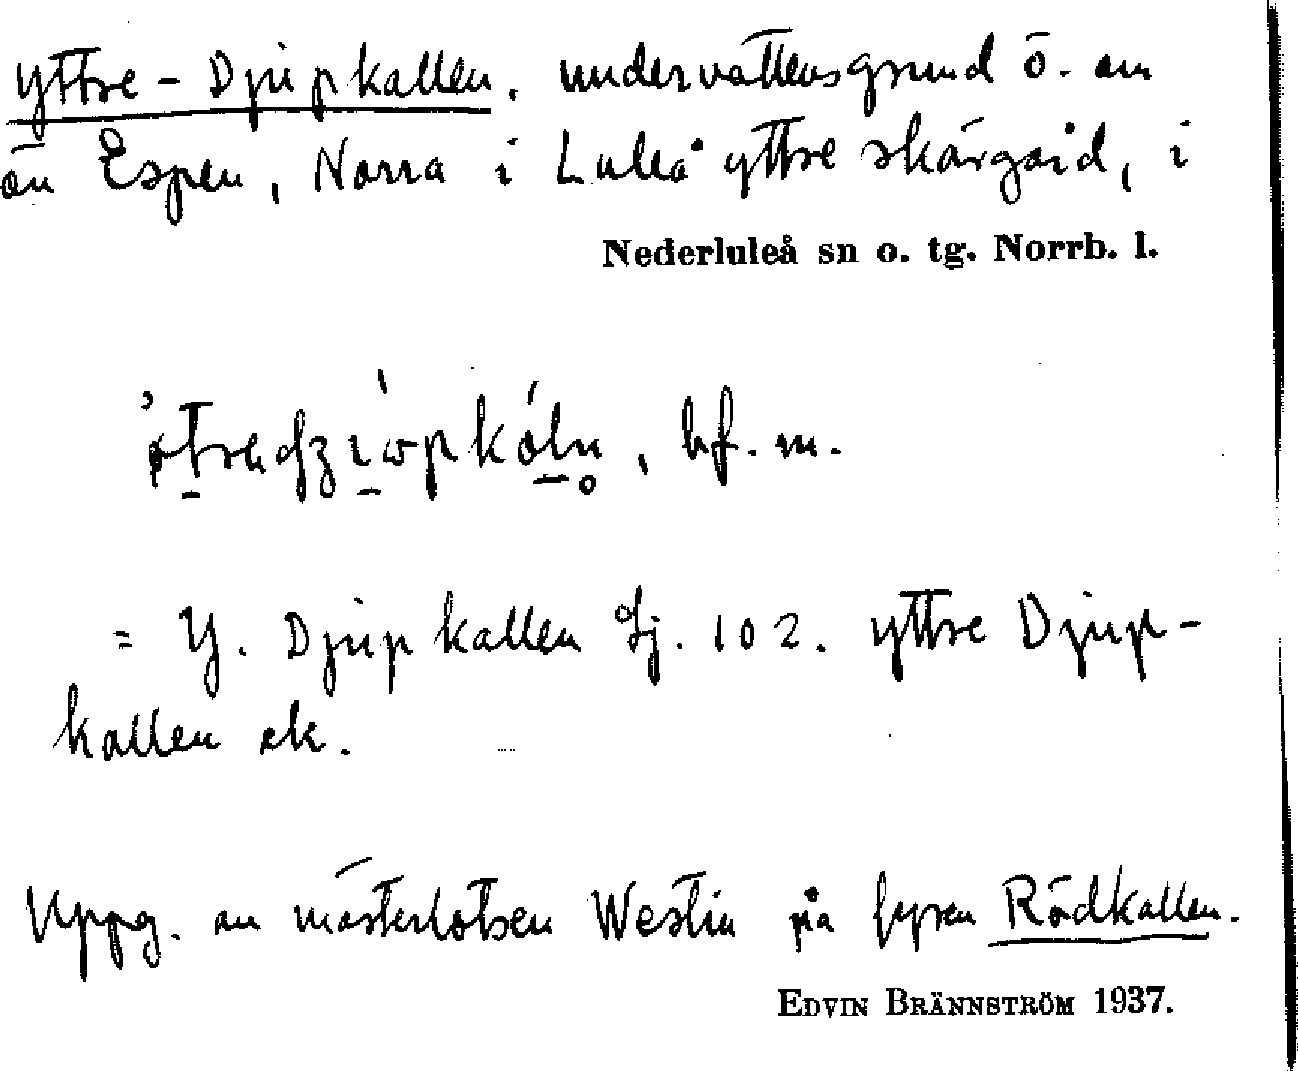 Yttre-Djupkallen, undervattensgrund ö. om
ön Espen, Norra i Luleå yttre skärgård, i
Nederluleå sn o. tg. Norrb. l.
bf. m.
= Y. Djupkallen Sj. 102. Yttre Djup-
kallen ek.
Uppg. av mästerlotsen Westin på fyren Rödkallen.
EDVIN BRÄNNSTRÖM 1937.